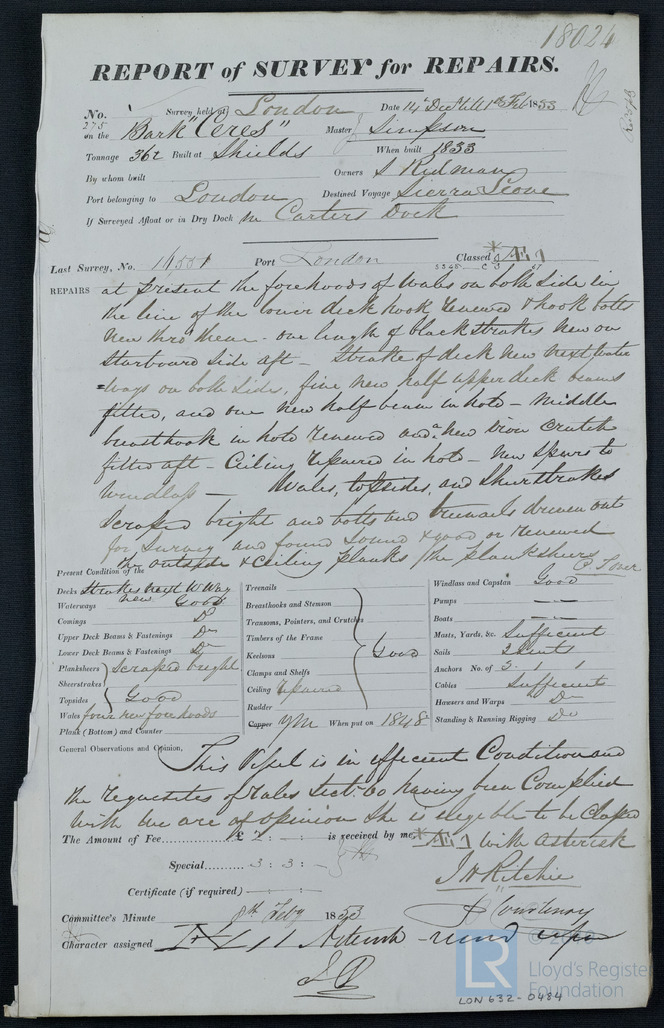 18024
REPORT of SURVEY for REPAIRS.
No. 275 Survey held at London Date 14 Decr till 1st Feby 1853
on the Bark "Ceres" Master J Simpson
Tonnage 362 Built at Shields When built 1833
By whom built Owners S Ridman
Port belonging to London Destined Voyage Sierra Leone
If Surveyed Afloat or in Dry Dock In Carters Dock
Last Survey, No. Port London Classed * Æ 1
REPAIRS at present the forehoods of Wales on both Side in
the line of the lower deck hook renewed & hook bolts
new thro' them - one length of black strakes new on
Starboard Side aft - Strake of deck new next water
=ways on both Sides, five new half upper deck beams
fitted, and one new half beam in hold - Middle
breasthook in hold renewed and a new Iron Crutch
fitted aft - Ceiling repaired in hold - new Spurs to
Windlass - Wales, topsides, and Sheerstrakes
Scraped bright and bolts and treenails driven out
for Survey and found Sound & good or renewed
the outside & Ceiling planks / the planksheers
Present Condition of the
Decks Strakes next W Way new
Waterways Good
Comings Do
Upper Deck Beams & Fastenings Do
Lower Deck Beams & Fastenings Do
Planksheers
Sheerstrakes
Scraped bright
Topsides Good
Wales four new forehoods
Plank (Bottom) and Counter
Treenails
Breasthooks and Stemson
Transoms, Pointers, and Crutches
Timbers of the Frame
Keelsons Good
Clamps and Shelfs
Ceiling repaired
Rudder
Copper YM When put on 1848
Windlass and Capstan Good
Pumps — —
Boats — —
Masts, Yards, &c. Sufficient
Sails 2 Suits
Anchors No. of 3. 1 1
Cables Sufficient
Hawsers and Warps Do
Standing & Running Rigging Do
General Observations and Opinion,
This Vessel is in efficient Condition and
the requisites of rules Sect. 60 having been Complied
with we are of opinion She is elegeble to be Classed
The Amount of Fee £ 2 : - : is received by me, * Æ 1 with asterisk
Special 3 : 3 : -
J H Ritchie
Certificate (if required) - : - : -
Courtenay
Committee's Minute 8th Feby 1853
Character assigned
LR
Lloyd's Register
Foundation
LON 632-0484